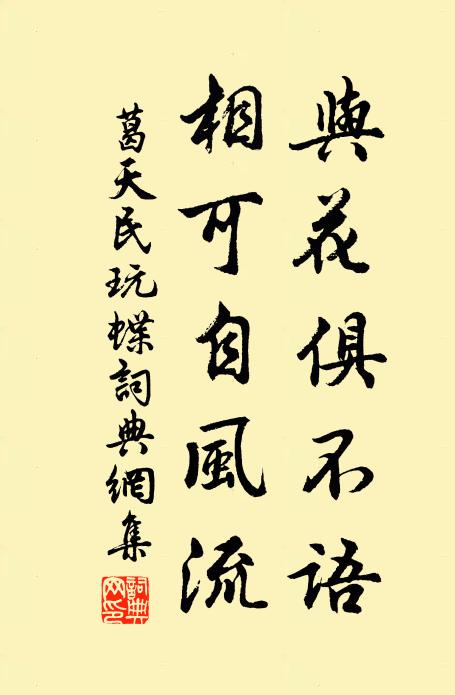 與花俱不語
相可自風流
葛天民玩蝶詞典網集
詞典網印